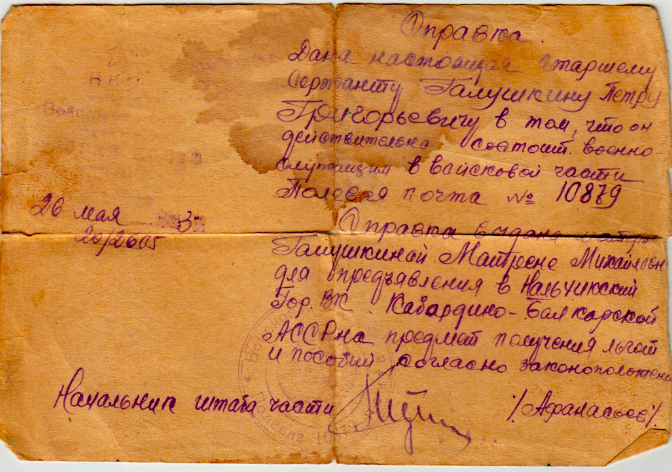 Справка.
Дана настоящая старшему
Сержанту Галушкину Петру
Григорьевичу в том, что он
действительно состоит военно
служащим в вайсковой части
Полевая почта № 10879
26 мая 3
20/2605
Справка выдана
Галушкиной Матрене Михайлов
для предъявления в Нальчикский
Гор. ВК. Кабардино-Балкарской
АССР на предмет получения льгот
и пособий согласно законоположени
Начальник штаба части /Афанасьев/.